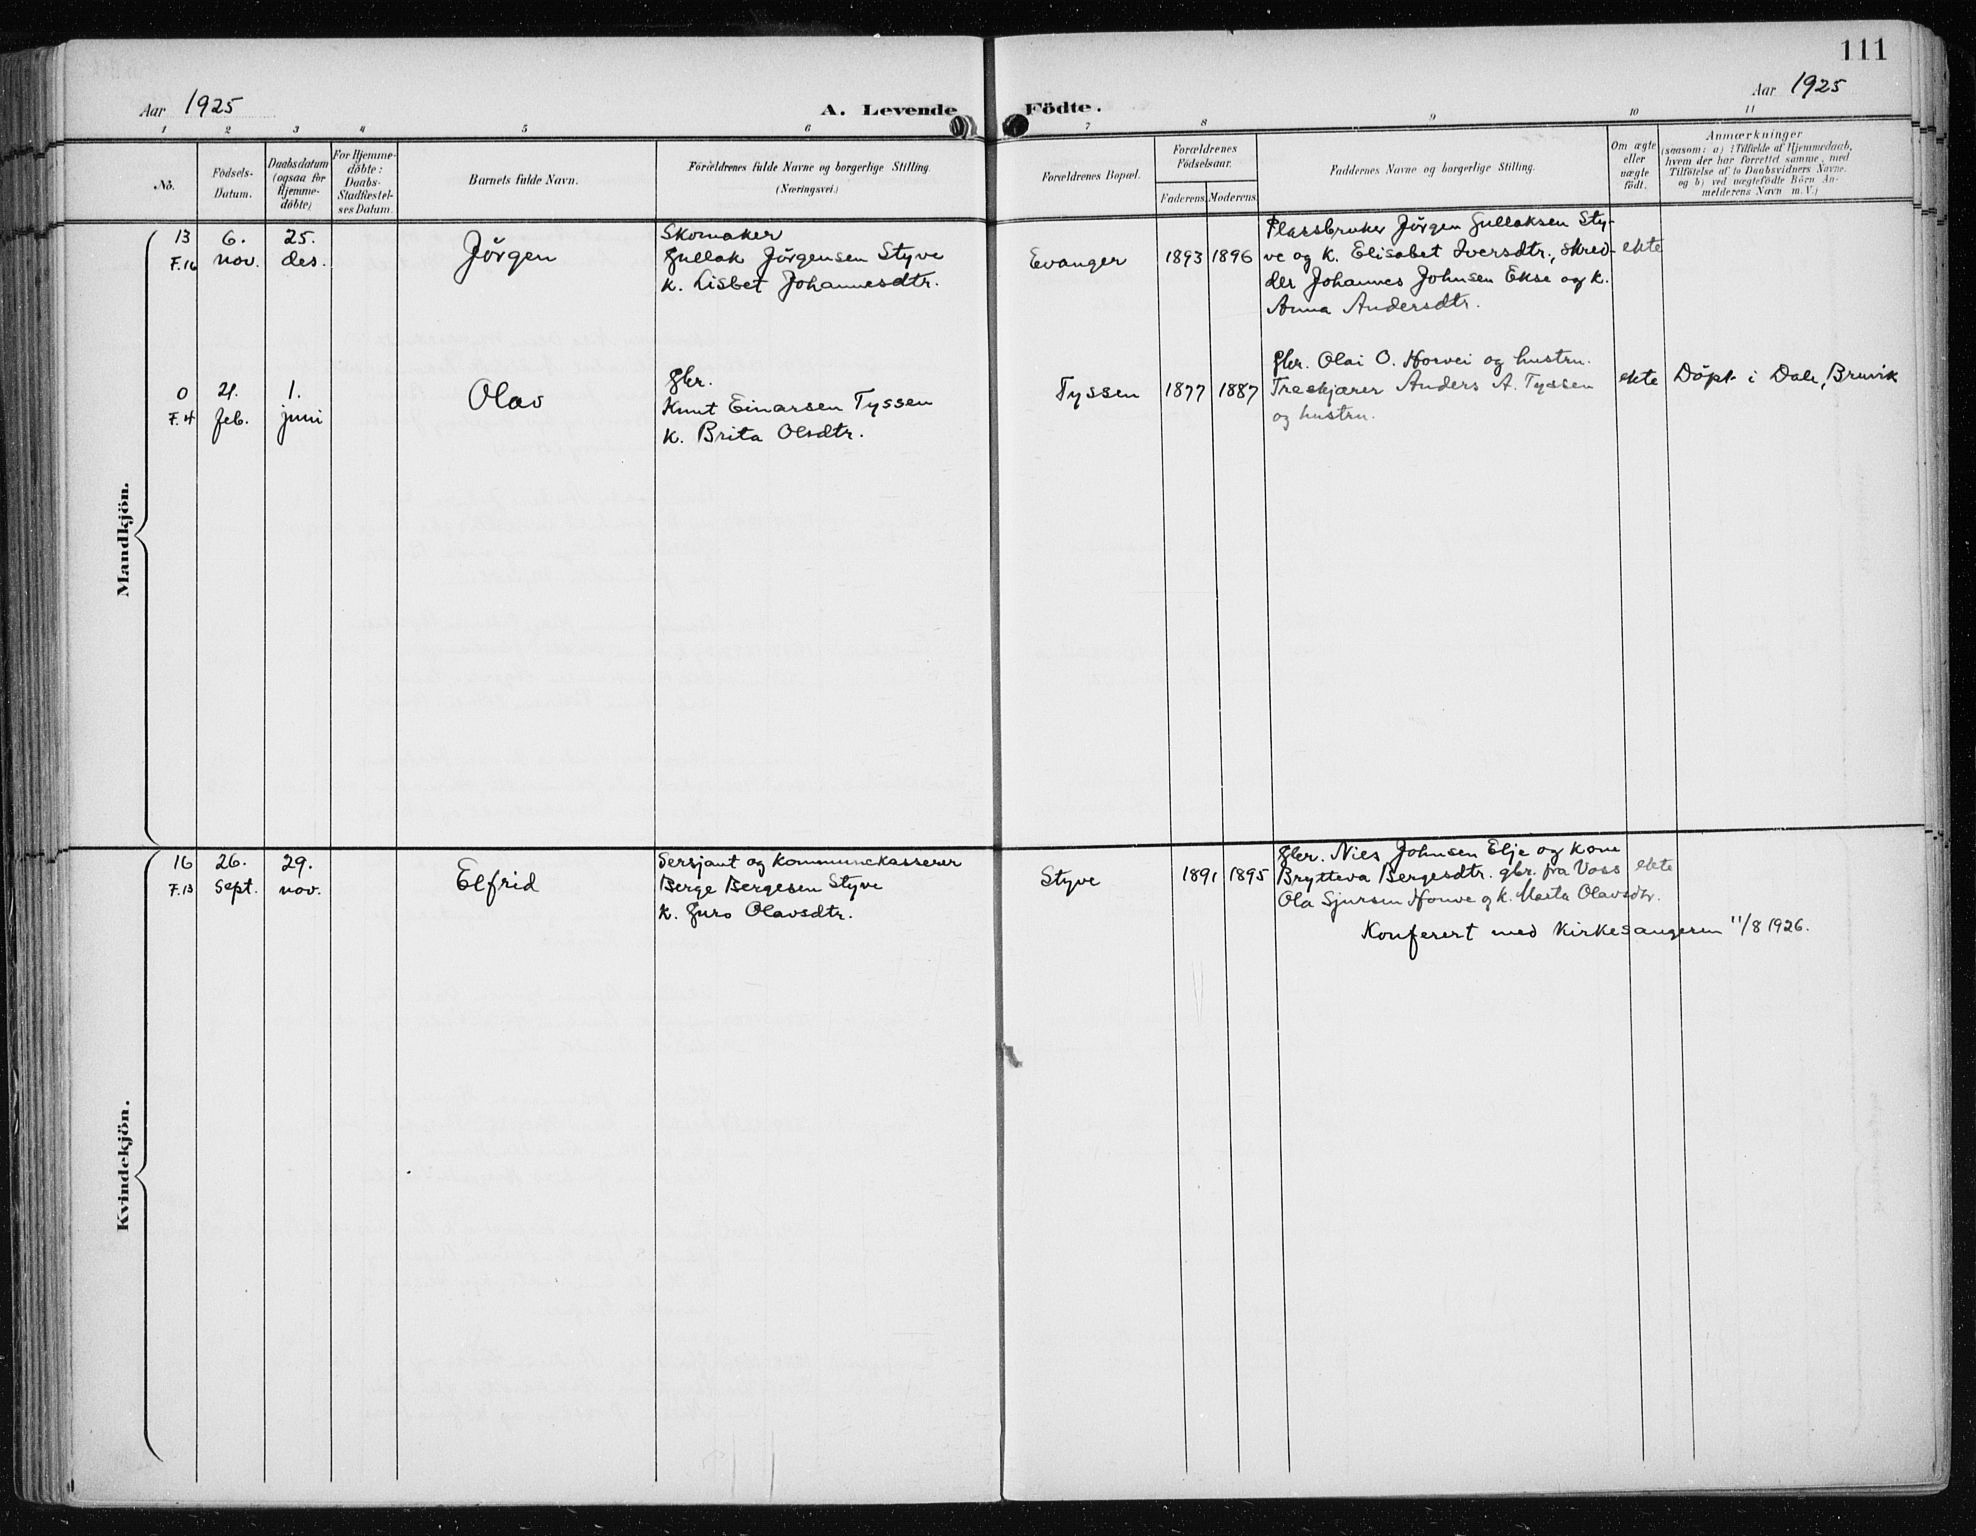 111
Aar 1925
A. Levende Födte.
Aar 1925
1 2 3 4 5 6 7 8 9 10 11
No.
Födsels-
Datum.
Daabsdatum
(ogsaa for
Hjemme-
döbte)
For Hjemme-
döbte:
Daabs-
Stadfæstel-
ses Datum.
Barnets fulde Navn.
Forældrenes fulde Navne og borgerlige Stilling.
(Næringsvei.)
Forældrenes Bopæl.
Forældrenes
Födselsaar.
Faderens. Moderens.
Faddernes Navne og borgerlige Stilling.
Om ægte
eller
uægte
født.
Anmærkninger
(saasom: a) i Tilfælde af Hjemmedaab,
hvem der har forrettet samme, med
Tilföielse af to Daabsvidners Navne.
og b) ved uægtefödte Börn An-
melderens Navn m. V.)
Mandkjön.
13
F.16
6.
nov.
25.
des.
Jörgen
Skomaker
Gullak Jörgensen Styve
k. Lisbet Johannesdtr.
Evanger
1893 1896
Plassbruker Jörgen Gullaksen Sty-
ve og k. Elisabet Iversdtr., skred-
der Johannes Johnsen Ekse og k.
Anna Andersdtr.
ekte
0
F.4
21.
feb.
1.
juni
Olav
Gbr.
Knut Einarsen Tyssen
k. Brita Olsdtr.
Tyssen
1877 1887
Gbr. Olai O. Horvei og hustru.
Treskjærer Anders A. Tyssen
og hustru.
ekte
Döpt i Dale, Bruvik
Kvindekjön.
16
F.13
26.
Sept.
29.
nov.
Elfrid
Sersjant og kommunekasserer
Berge Bergesen Styve
k. Guro Olavsdtr.
Styve
1891 1895
Gbr. Nils Johnsen Elje og kone
Brytteva Bergesdtr. gbr. fra Voss
Ola Sjursen Honve og k. Marta Olavsdtr.
ekte
Konferert med kirkesangeren 11/8 1926.